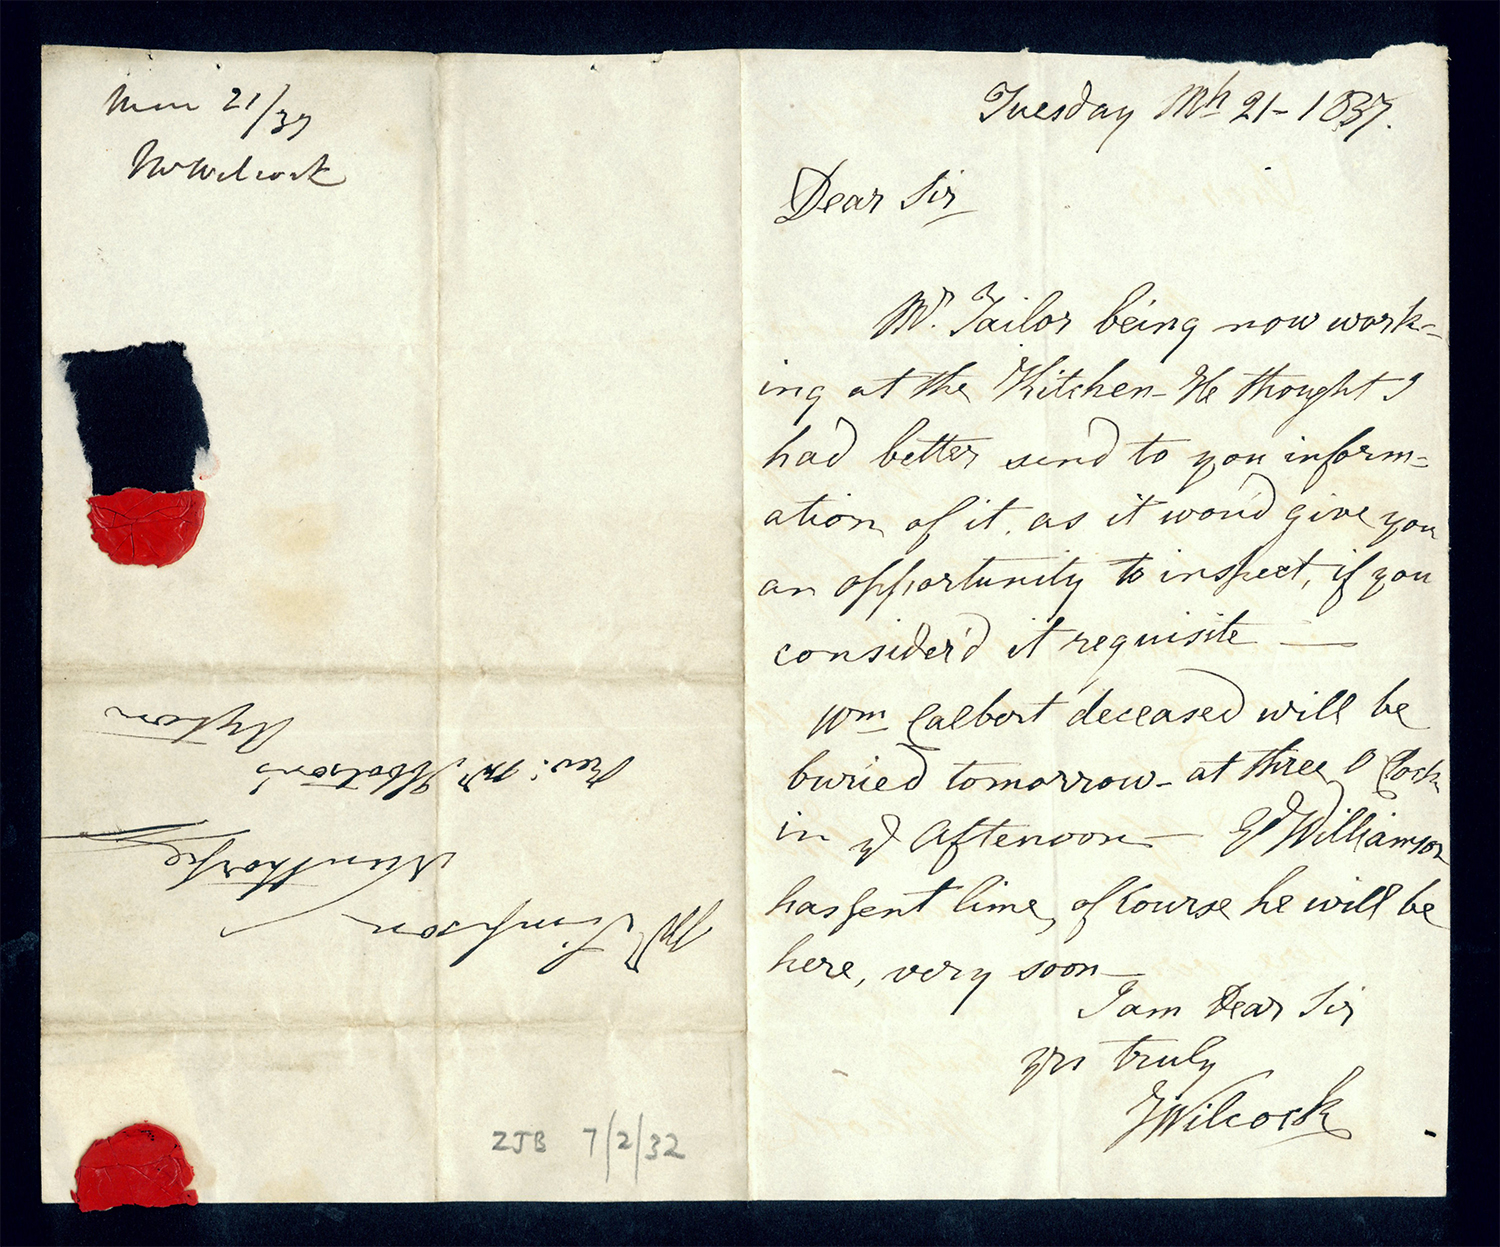 Mar 21/37
Mr Wilcock
Revd: Mr Ibbotson's
Ayton
Mr Simpson
Nunthorpe
ZJB 7/2/32
Tuesday Mh 21 - 1837.
Dear Sir
Mr. Tailor being now work=
ing at the Kitchen - He thought I
had better send to you inform=
ation of it. as it wou'd give you
an opportunity to inspect, if you
consider'd it requisite —
Wm Calbert deceased will be
buried tomorrow - at three O Clock
in ye Afternoon — Ed Williamson
has sent lime, of Course he will be
here, very soon —
I am Dear Sir
yrs truly
J Wilcock